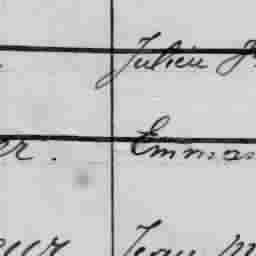 Julien
er. Emma
eur Jean M